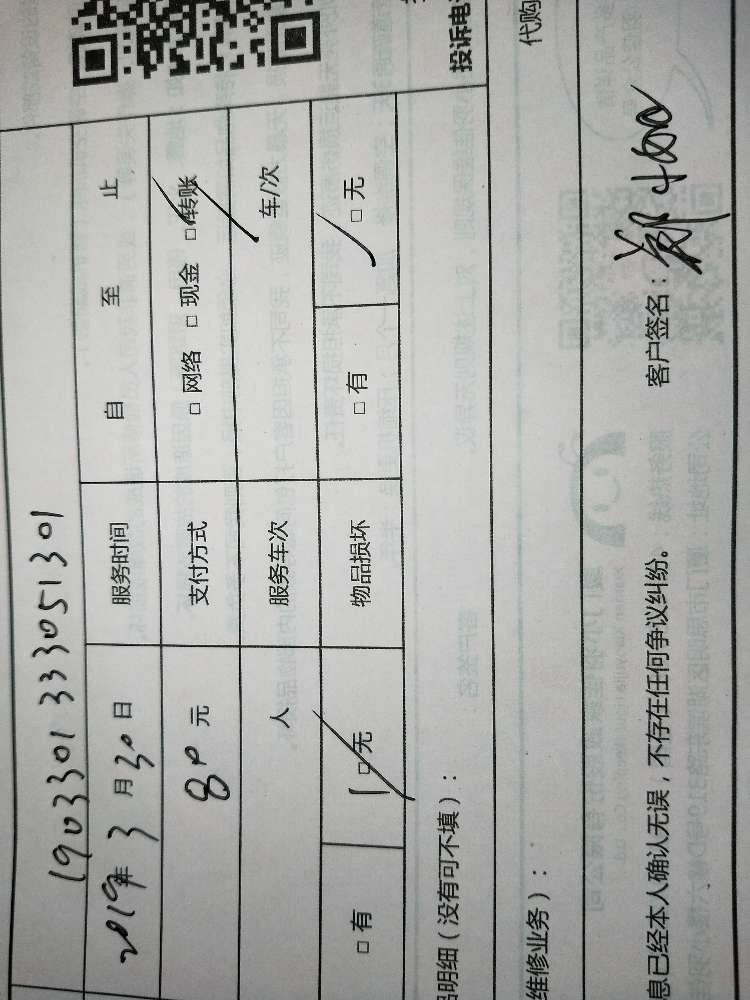 投诉电
1903301333051301
2019年 3 月 30 日 服务时间 自 至 止
80 元 支付方式 □ 网络 □ 现金 □ 转账
人 服务车次 车/次
□ 有 □ 无 物品损坏 □ 有 □ 无
品明细（没有可不填）：
维修业务）： 代购
息已经本人确认无误，不存在任何争议纠纷。 客户签名：郑